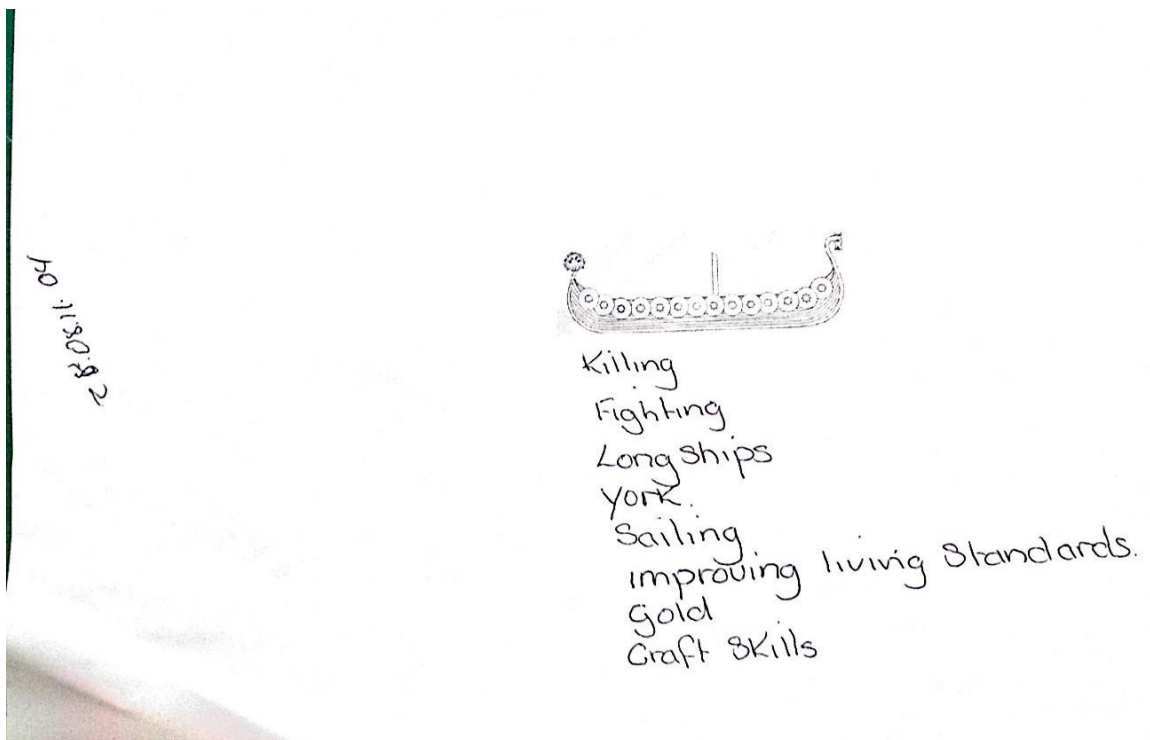 28.08.11.04
Killing
Fighting
Long Ships
York.
Sailing
improving living Standards.
gold
Craft Skills